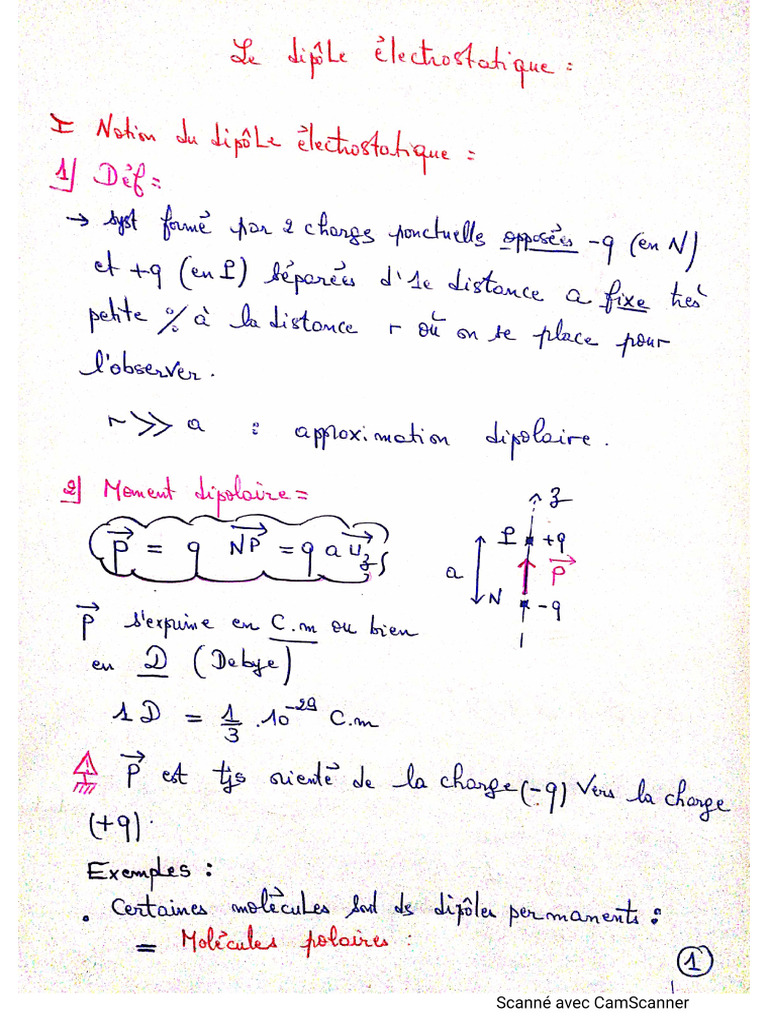 Le dipôle électrostatique :
I Notion du dipôle électrostatique :
1) Déf :
→ syst formé par 2 charge ponctuelles opposées -q (en N)
et +q (en P) séparées d'1e distance a fixe très
petite %à la distance r où on se place pour
l'observer.
r >> a : approximation dipolaire.
2) Moment dipolaire =
P⃗ = q NP⃗ = q a u⃗z
z
P +q
a P⃗
N -q
P⃗ s'exprime en C.m ou bien
en D (Debye)
1D = 1/3 .10⁻²⁹ C.m
P⃗ est tjs orienté de la charge (-q) vers la charge
(+q).
Exemples :
. Certaines molécules sont ds dipôles permanents :
= Molécules polaires :
1
Scanné avec CamScanner